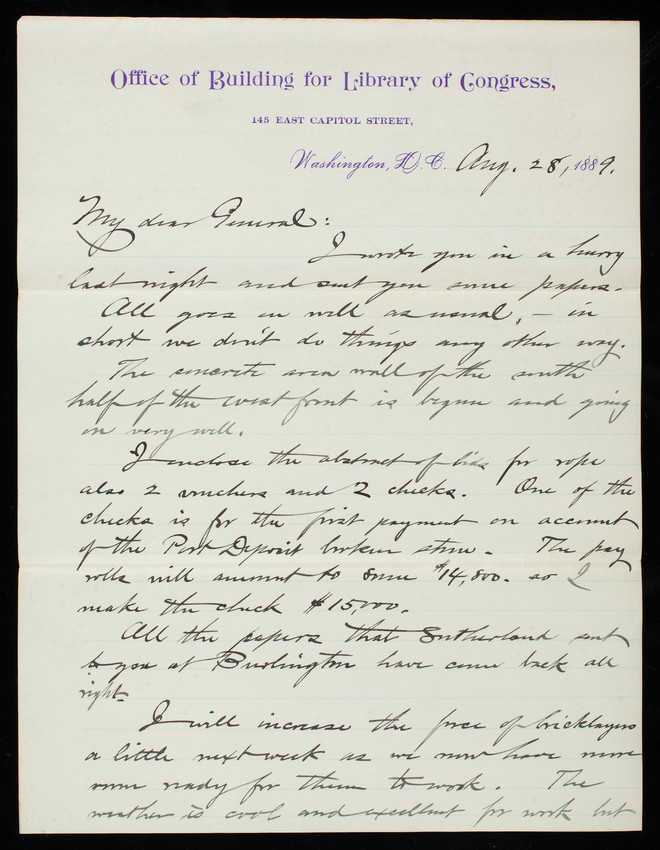 Office of Building for Library of Congress,
145 EAST CAPITOL STREET,
Washington, D.C. Aug. 28, 1889.
My dear General:
I wrote you in a hurry
last night and sent you some papers.
All goes on well as usual, – in
short we don't do things any other way.
The concrete area wall of the south
half of the west front is begun and going
on very well.
I enclose the abstract of bids for rope
also 2 vouchers and 2 checks. One of the
checks is for the first payment on account
of the Port Deposit broken stone. The pay
rolls will amount to some $14,800. so I
make the check $15,000.
All the papers that Sutherland sent
to you at Burlington have come back all
right.
I will increase the force of bricklayers
a little next week as we now have more
room ready for them to work. The
weather is cool and excellent for work but